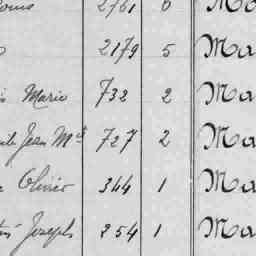 2761 6 Ma
2179 5 Ma
Marie 732 2 Ma
Jean Mie 727 2 Ma
Olivier 344 1 Ma
Joseph 254 1 Ma